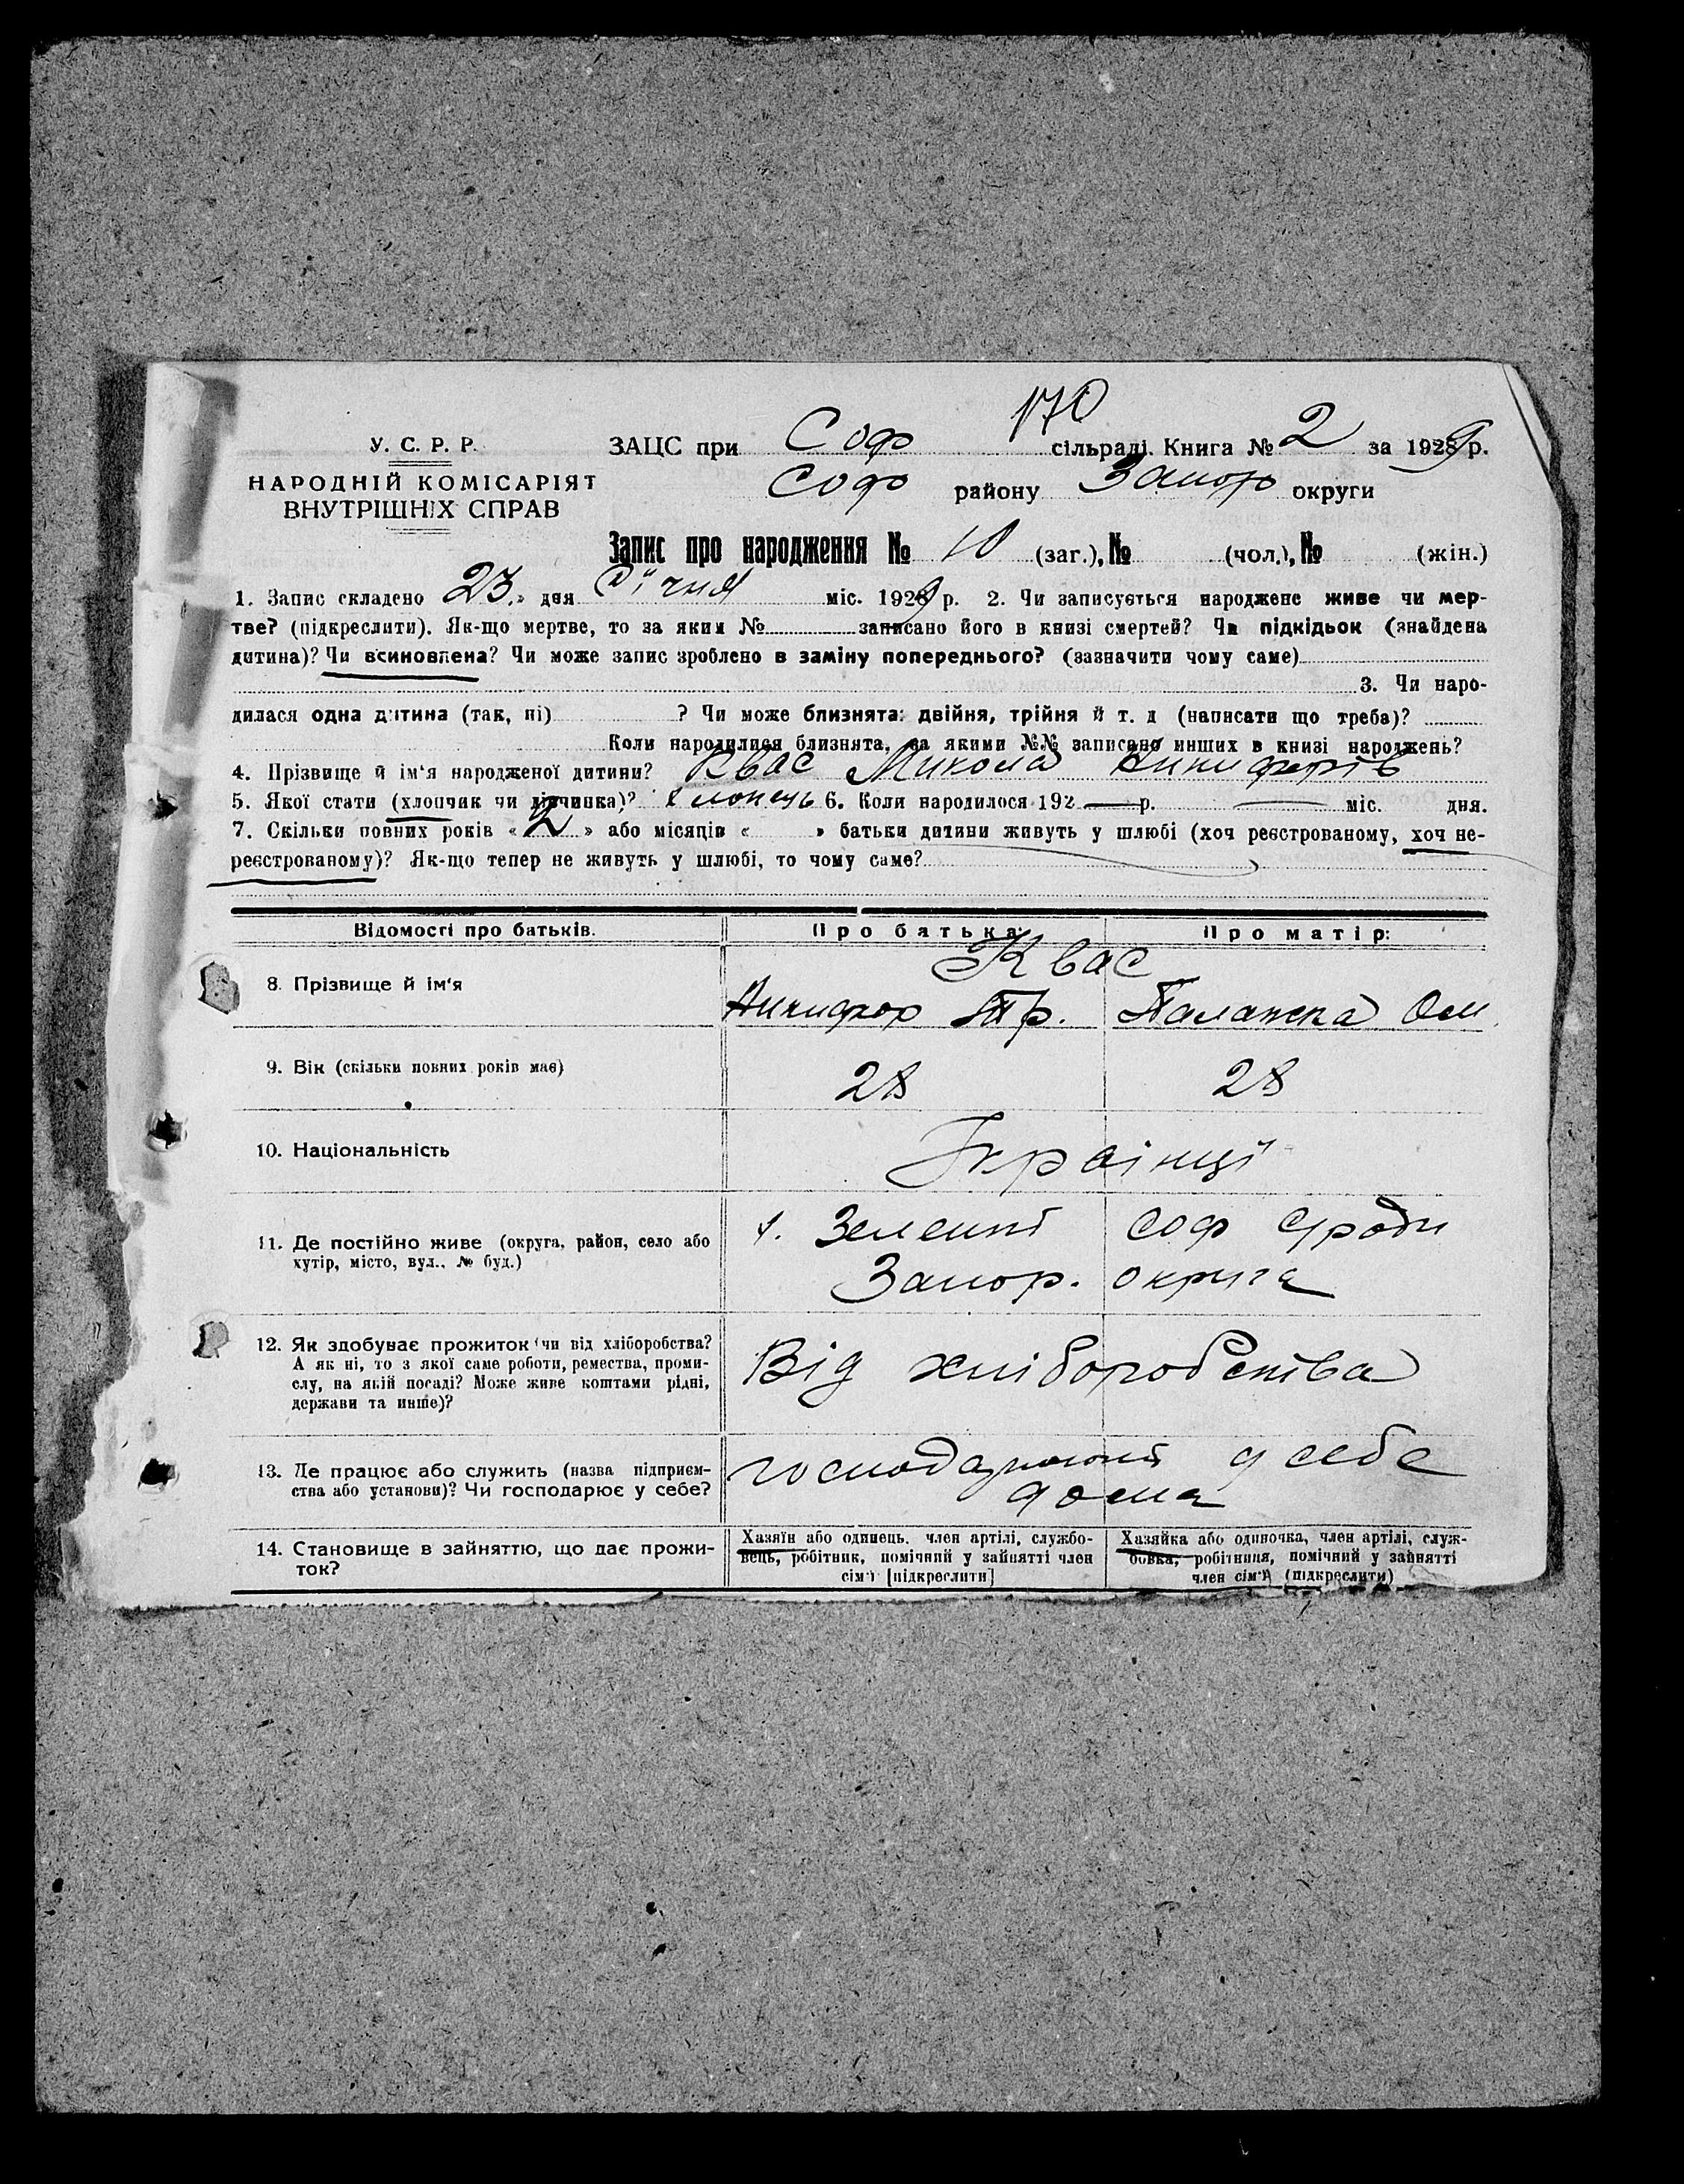 170
У. С. Р. Р.
ЗАЦС при Соф сільраді. Книга № 2 за 1929 р.
НАРОДНІЙ КОМІСАРІЯТ
ВНУТРІШНІХ СПРАВ
Соф району Запор округи
Запис про народження № 10 (заг.), № (чол.), № (жін.)
1. Запис складено 23 » дня Січня міс. 1929 р. 2. Чи записується народжене живе чи мер-
тве? (підкреслити). Як-що мертве, то за яким № записано його в книзі смертей? Чи підкідьок (знайдена
дитина)? Чи всиновлена? Чи може запис зроблено в заміну попереднього? (зазначити чому саме)
3. Чи наро-
дилася одна дитина (так, ні) ? Чи може близнята: двійня, трійня й т. д (написати що треба)?
Коли народилися близнята, за якими №№ записано инших в книзі народжень?
4. Прізвище й ім'я народженої дитини? Квас Микола Никифорів
5. Якої стати (хлопчик чи дівчинка)? Хлопець 6. Коли народилося 192 — р. — міс. дня.
7. Скільки повних років « 2 » або місяців « » батьки дитини живуть у шлюбі (хоч реєстрованому, хоч не-
реєстрованому)? Як-що тепер не живуть у шлюбі, то чому саме?
Відомості про батьків. Про батька: Про матір:
Квас
8. Прізвище й ім'я
Никифор Тр. Палажка Ом
9. Вік (скільки повних років має) 28 28
10. Національність Українці
11. Де постійно живе (округа, район, село або
хутір, місто, вул., № буд.)
Соф
Запор. округа
12. Як здобуває прожиток (чи від хліборобства?
А як ні, то з якої саме роботи, ремества, проми-
слу, на якій посаді? Може живе коштами рідні,
держави та инше)?
Від хліборобства
13. Де працює або служить (назва підприєм-
ства або установи)? Чи господарює у себе?
господарюют у себе
дома
14. Становище в зайняттю, що дає прожи-
ток?
Хазяїн або одинець, член артілі, службо-
вець, робітник, помічний у зайнятті член
сім'ї [підкреслити]
Хазяйка або одиночка, член артілі, служ-
бовка, робітниця, помічний у зайнятті
член сім'ї (підкреслити)